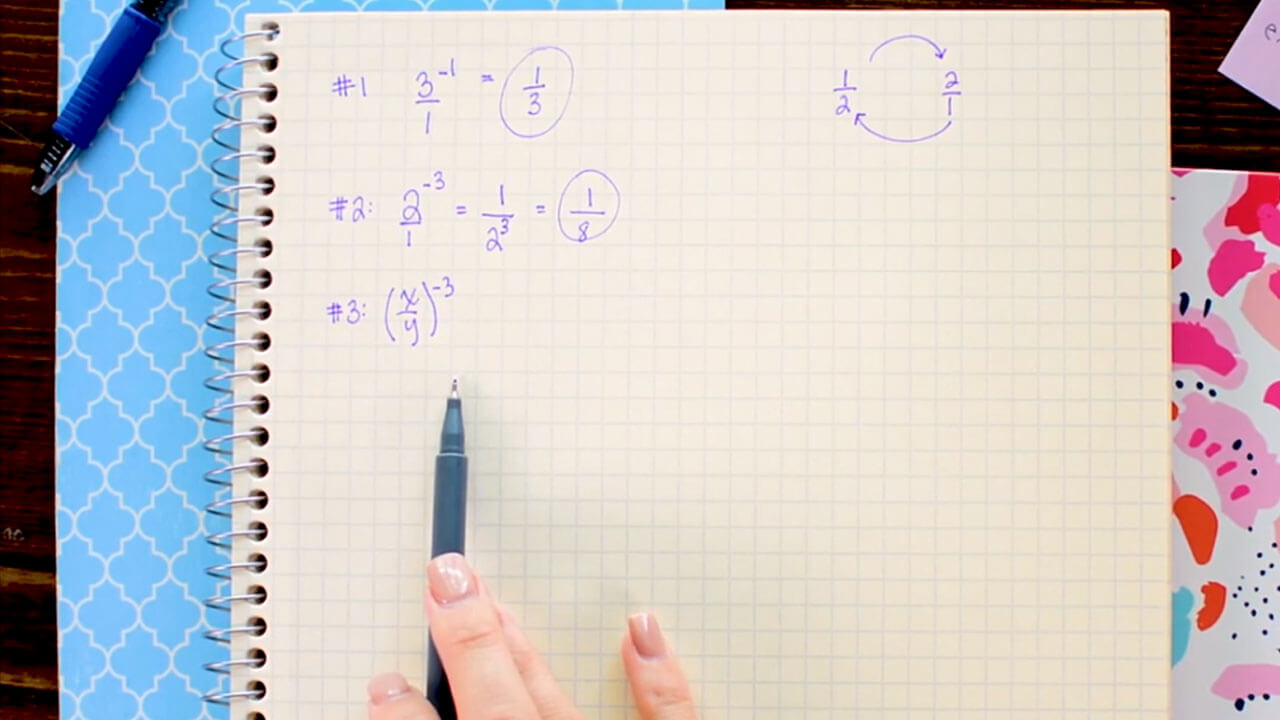 #1 3/1^-1 = 1/3
1/2 2/1
#2: 2/1^-3 = 1/2^3 = 1/8
#3: (x/y)^-3